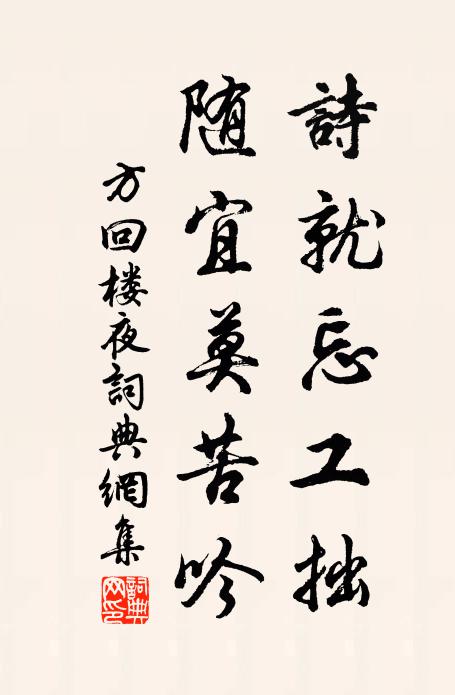 詩就忘工拙
随宜莫苦吟
方回楼夜詞典網集
詞典网印